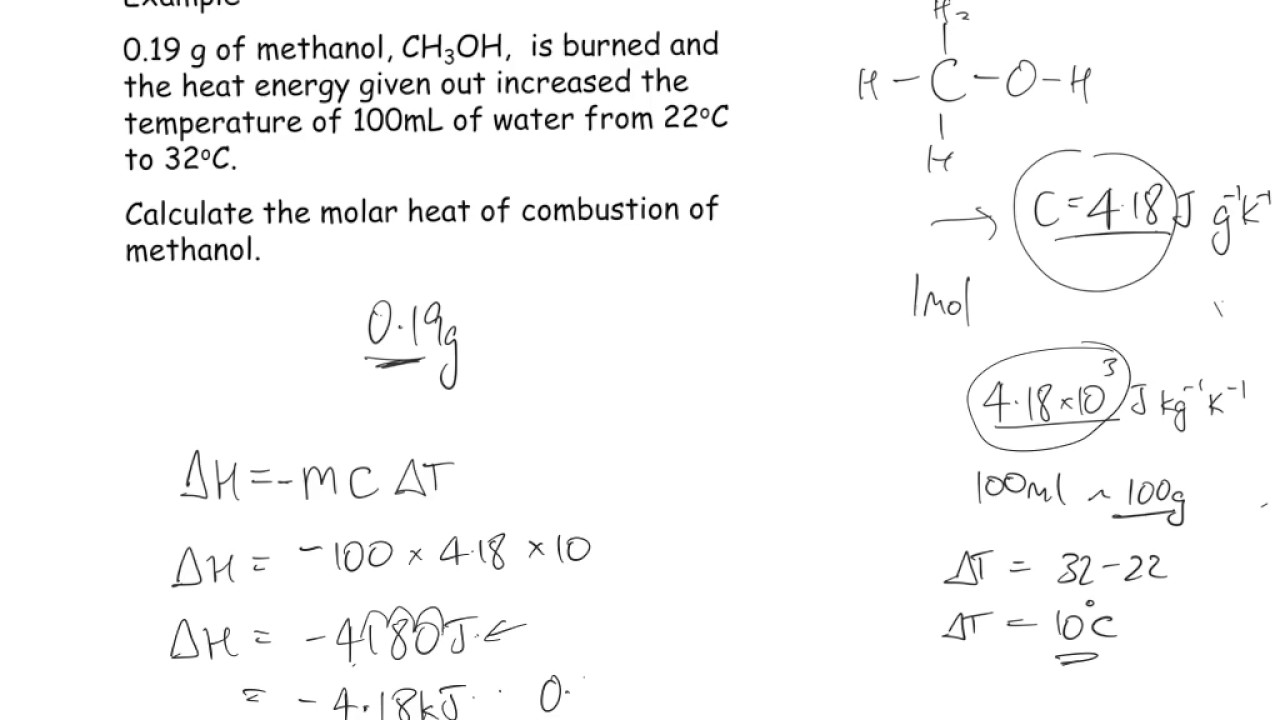 Example
0.19 g of methanol, CH₃OH, is burned and
the heat energy given out increased the
temperature of 100mL of water from 22°C
to 32°C.
Calculate the molar heat of combustion of
methanol.
0.19g
ΔH = -mcΔT
ΔH = -100 × 4.18 × 10
ΔH = -4180J ←
= -4.18kJ 0.
H
H - C - O - H
H
→ C = 4.18 J g⁻¹K⁻¹
1mol
4.18 × 10³ J kg⁻¹K⁻¹
100ml ~ 100g
ΔT = 32 - 22
ΔT = 10°C